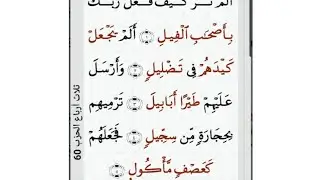 ألم تر كيف فعل ربك
بِأَصْحَٰبِ ٱلْفِيلِ ۝ أَلَمْ يَجْعَلْ
كَيْدَهُمْ فِي تَضْلِيلٖ ۝ وَأَرْسَلَ
عَلَيْهِمْ طَيْرًا أَبَابِيلَ ۝ تَرْمِيهِم
بِحِجَارَةٖ مِّن سِجِّيلٖ ۝ فَجَعَلَهُمْ
كَعَصْفٖ مَّأْكُولِۭ ۝
ثلاث أرباع الحزب 60